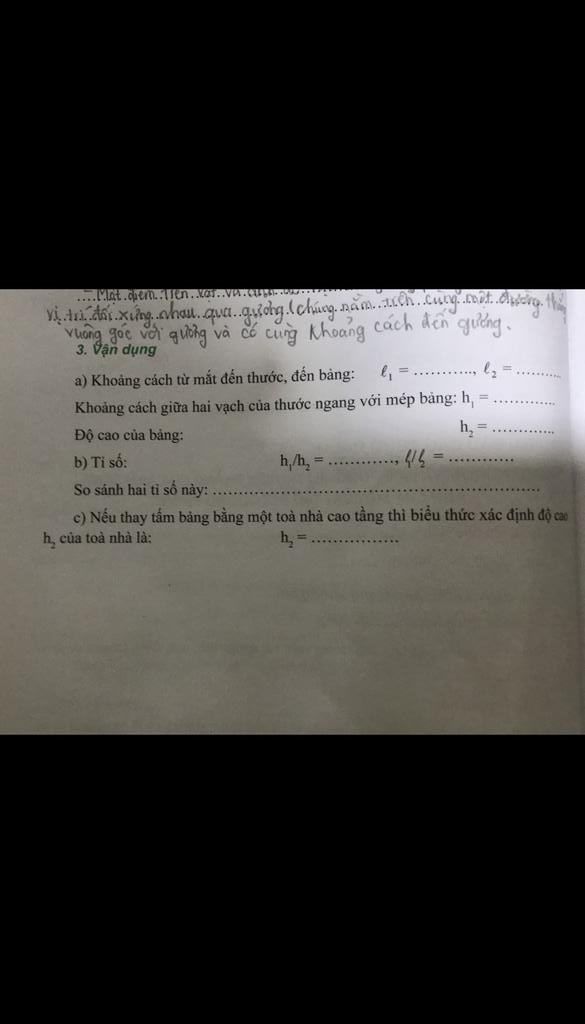 vị trí đối xứng nhau qua gương (chúng nằm trên cùng một đường
vuông góc với gương và có cùng khoảng cách đến gương.
3. Vận dụng
a) Khoảng cách từ mắt đến thước, đến bảng: ℓ₁ = ..........., ℓ₂ = ..........
Khoảng cách giữa hai vạch của thước ngang với mép bảng: h₁ = .............
Độ cao của bảng: h₂ = .............
b) Tỉ số: h₁/h₂ = ............, ℓ₁/ℓ₂ = .............
So sánh hai tỉ số này: ..................................................................
c) Nếu thay tấm bảng bằng một toà nhà cao tầng thì biểu thức xác định độ cao
h₂ của toà nhà là: h₂ = ................